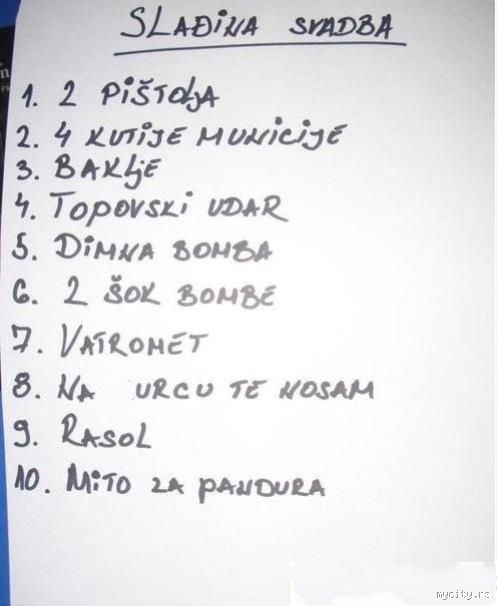 SLAĐINA SVADBA
1. 2 PIŠTOLJA
2. 4 KUTIJE MUNICIJE
3. BAKLJE
4. TOPOVSKI UDAR
5. DIMNA BOMBA
6. 2 ŠOK BOMBE
7. VATROMET
8. NA URCU TE NOSAM
9. RASOL
10. MITO ZA PANDURA
mycity.rs